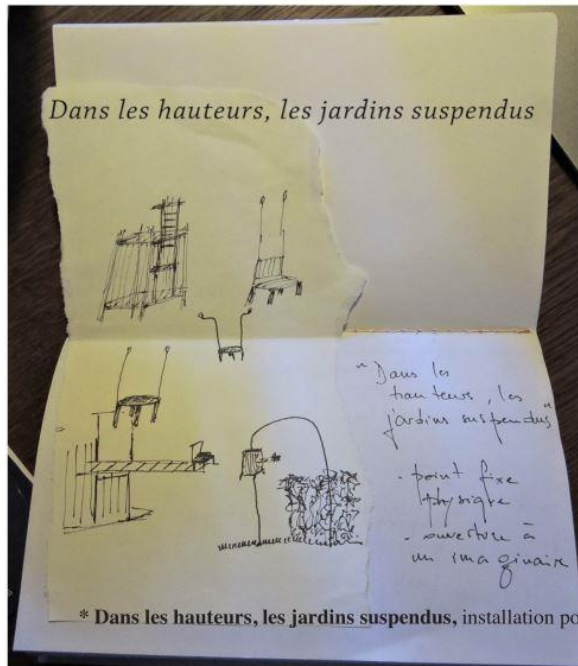 Dans les hauteurs, les jardins suspendus
"Dans les
hauteurs, les
jardins suspendus"
- point fixe
physique
- ouverture à
un imaginaire
* Dans les hauteurs, les jardins suspendus, installation po